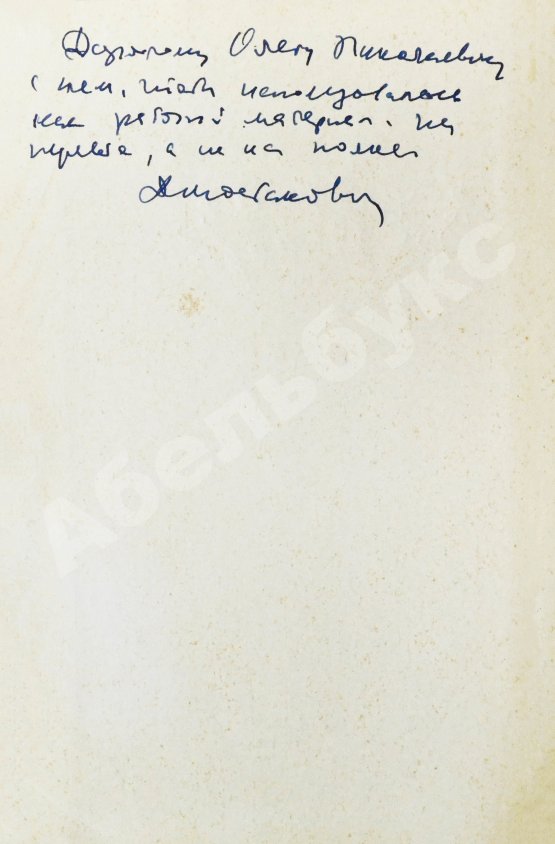 Дорогому Олегу Николаевичу
с тем, чтобы использовалась
как рабочий материал на
, а не на полке
ДШостакович
Абельбукс